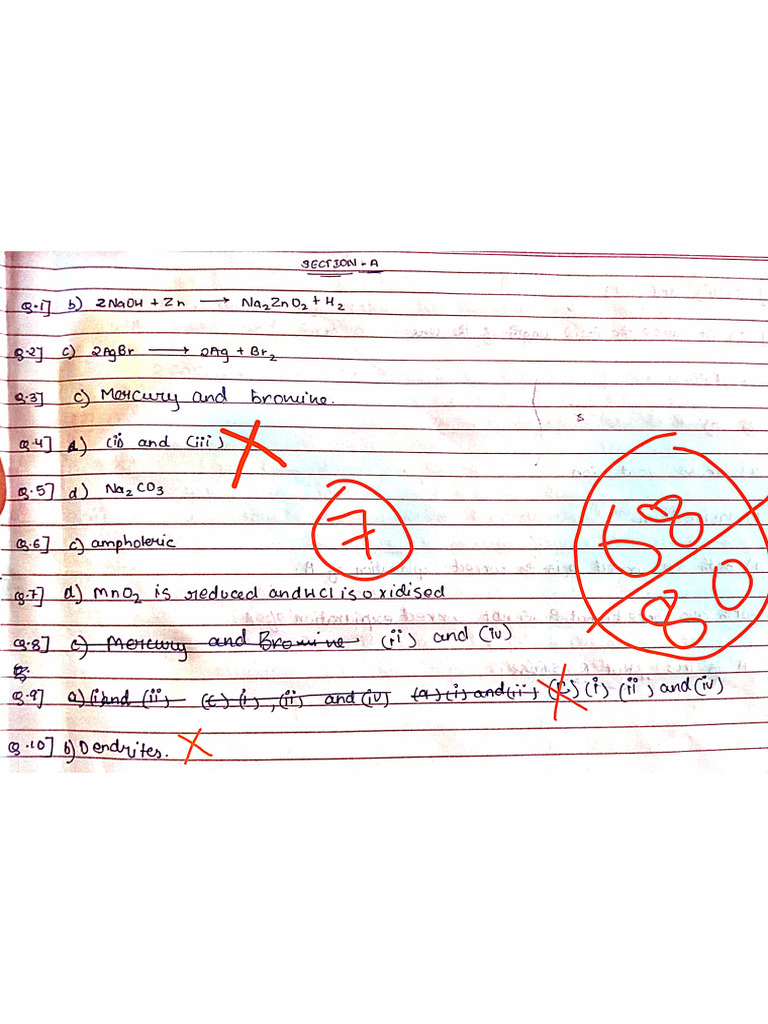 SECTION - A
Q.1] b) 2NaOH + Zn → Na₂ZnO₂ + H₂
Q.2] c) 2AgBr → 2Ag + Br₂
Q.3] c) Mercury and bromine.
s
Q.4] d) (ii) and (iii)
Q.5] d) Na₂CO₃
7
68/80
Q.6] c) amphoteric
Q.7] d) MnO₂ is reduced and HCl is oxidised
Q.8] c) Mercury and Bromine (ii) and (iv)
Q.9] a) (i) and (ii) (c) (i), (ii) and (iv) (a) (i) and (ii) (c) (i) (ii) and (iv)
Q.10] b) Dendrites.